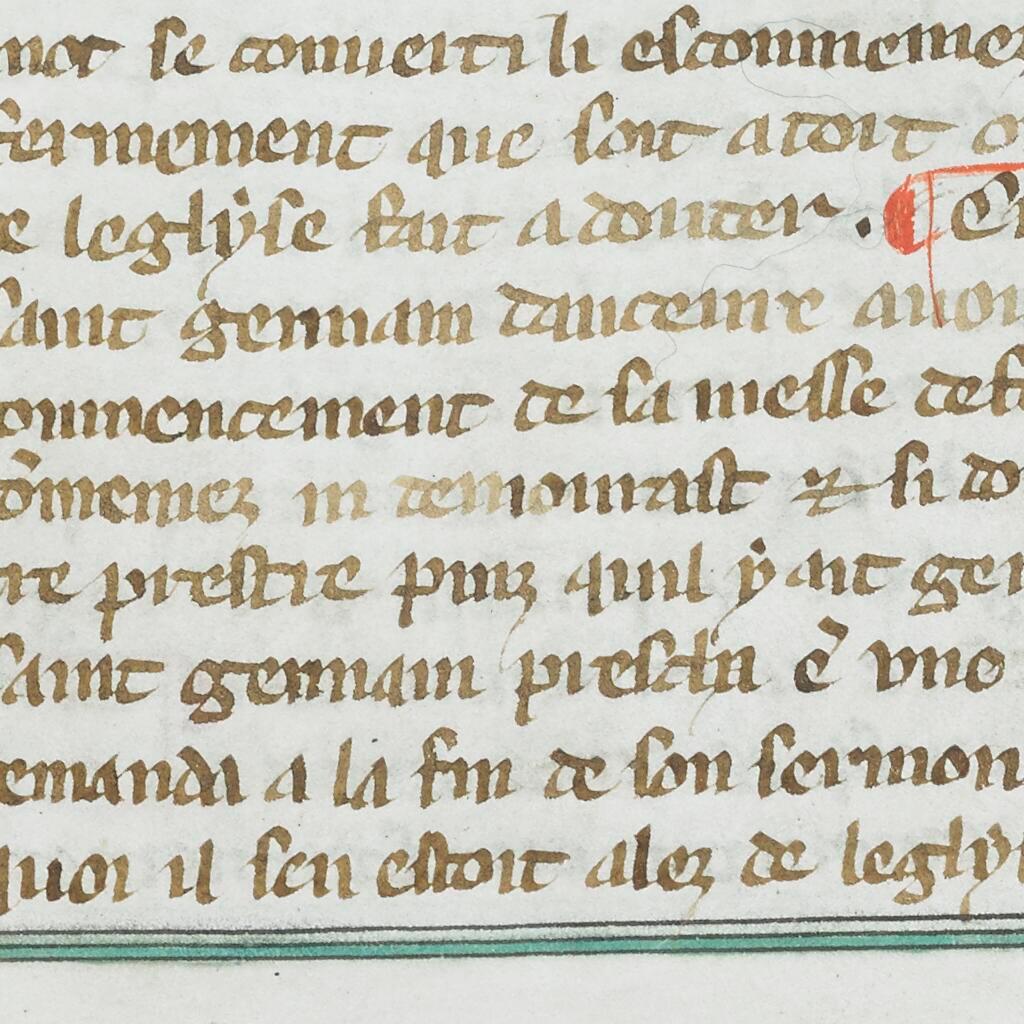 mot se conuerti li escommeniez
fermement que soit a toit o
e leglyse fait a douter . ¶ En
saint germain dauceurre auoi
commencement de sa messe def
cōmeniez ni demourast & si do
tre prestre puiz quil y ait ger
saint germain prescha ē vne
emanda a la fin de son sermon
quoi il sen estoit alez de leglys